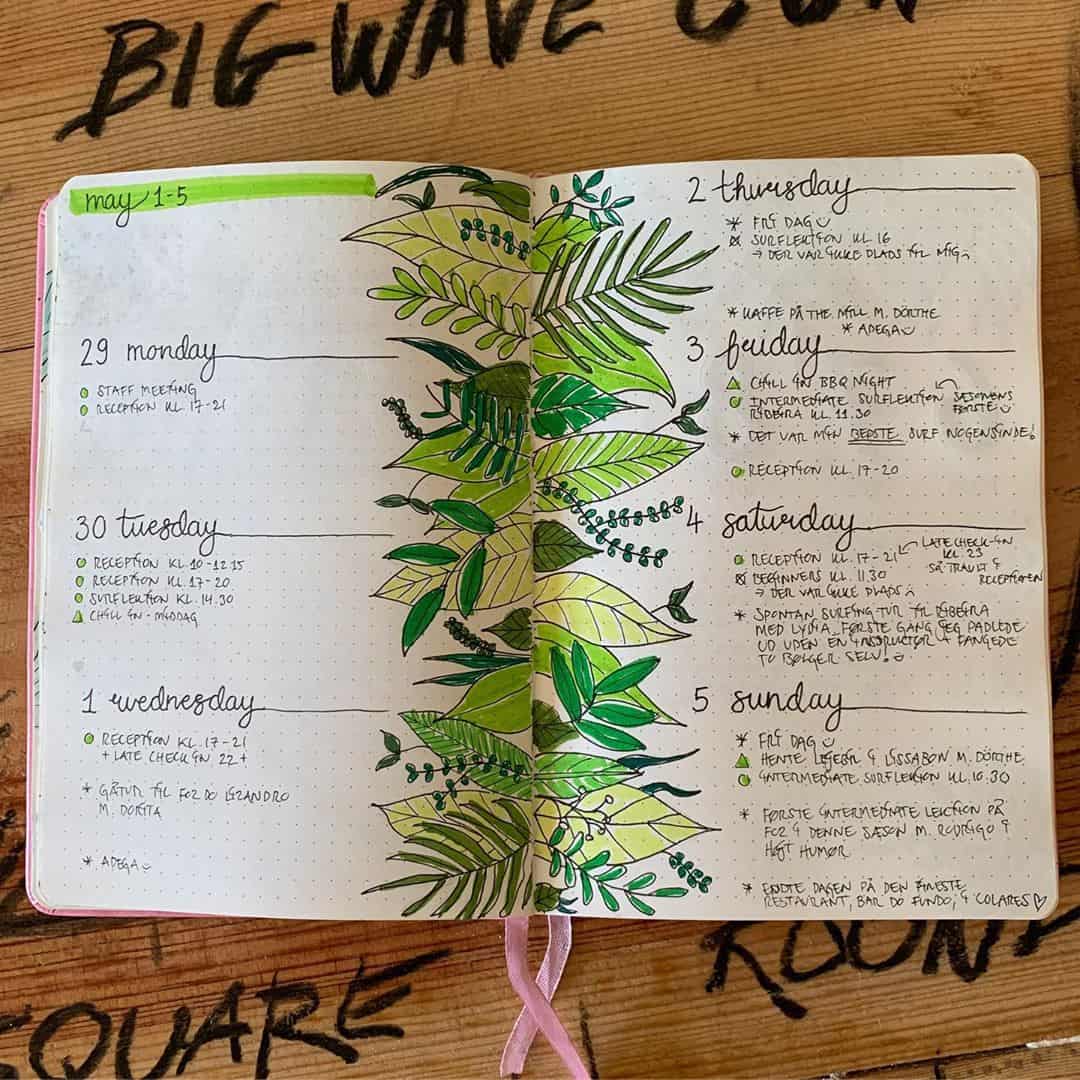 BIG WAVE
may 1-5
29 monday
STAFF MEETING
RECEPTION KL. 17-21
30 tuesday
RECEPTION KL. 10-12.15
RECEPTION KL. 17-20
SURFLEKTION KL. 14.30
CHILL IN - MIDDAG
1 wednesday
RECEPTION KL. 17-21
+ LATE CHECK IN 22 +
* GÅTUR TIL FOZ DO LIZANDRO
M. DORITA
* ADEGA
2 thursday
* FRI DAG
SURFLEKTION KL 16
→ DER VAR IKKE PLADS TIL MIG
* KAFFE PÅ THE MILL M. DÖRTHE
* ADEGA
3 friday
CHILL IN BBQ NIGHT
INTERMEDIATE SURFLEKTION
RIBEIRA KL 11.30
SÆSONENS
FØRSTE
* DET VAR MIN BEDSTE SURF NOGENSINDE!
RECEPTION KL. 17-20
4 saturday
RECEPTION KL. 17-21
LATE CHECK-IN
KL. 23
SÅ TRAVLT I
RECEPTIONEN
BEGINNERS KL. 11.30
→ DER VAR IKKE PLADS
* SPONTAN SURFING TUR TIL RIBEIRA
MED LYDIA. FØRSTE GANG JEG PADLEDE
UD UDEN EN INSTRUCTOR + FANGEDE
TO BØLGER SELV!
5 sunday
* FRI DAG
HENTE LEJEBIL I LISSABON M. DÖRTHE
INTERMEDIATE SURFLEKTION KL. 10.30
* FØRSTE INTERMEDIATE LEKTION PÅ
FOZ I DENNE SÆSON M. RODRIGO I
HØJT HUMØR
* ENDTE DAGEN PÅ DEN FINESTE
RESTAURANT, BAR DO FUNDO, I COLARES ♡
SQUARE ROUND